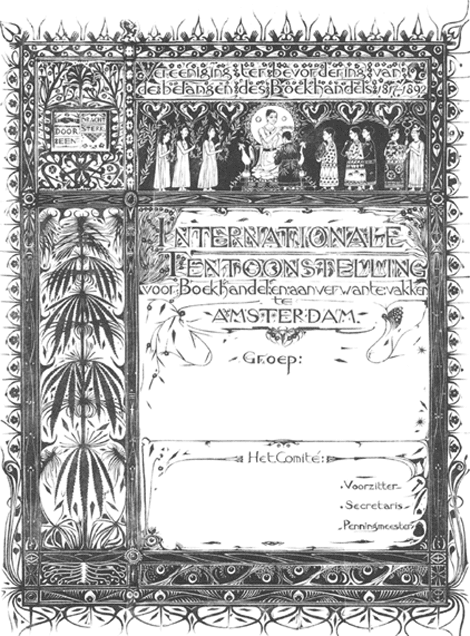 Vereeniging ter bevordering van
de belangen des Boekhandels 1817-1892
DOOR
EEN
DRACHT
STERK
INTERNATIONALE
TENTOONSTELLING
voor Boekhandel en aanverwante vakken
te
AMSTERDAM.
Groep:
Het Comité:
Voorzitter
Secretaris
Penningmeester